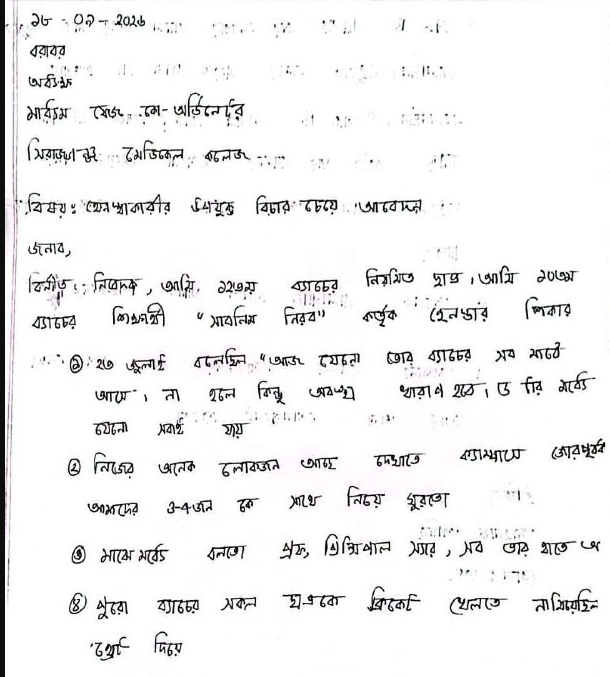 ১৮ - ০৯ - ২০২৬
বরাবর
অধ্যক্ষ
মাধ্যম ফেজ কো-অর্ডিনেটর
সিরাজগঞ্জ মেডিকেল কলেজ
বিষয়ঃ হেনস্থাকারীর উপযুক্ত বিচার চেয়ে আবেদন
জনাব,
বিনীত নিবেদক, আমি ১২তম ব্যাচের নিয়মিত ছাত্র। আমি ১০তম
ব্যাচের শিক্ষার্থী "সাবনিম নিরব" কর্তৃক হেনস্তার শিকার
① ২৩ জুলাই বলেছিল "আজ যেনো তোর ব্যাচের সব মাঠে
আসে, না হলে কিন্তু অবস্থা খারাপ হবে। ৫ টার মধ্যে
যেনো সবাই যায়
② নিজের অনেক লোকজন আছে দেখাতে ক্যাম্পাসে জোরপূর্বক
আমাদের ৩-৪জন কে সাথে নিয়ে ঘুরতো
③ মাঝে মধ্যে বলতো প্রফ, প্রিন্সিপাল স্যার, সব তার হাতে
④ পুরো ব্যাচের সকল ছাত্রকে ক্রিকেট খেলতে নামিয়েছিল
থ্রেট দিয়ে